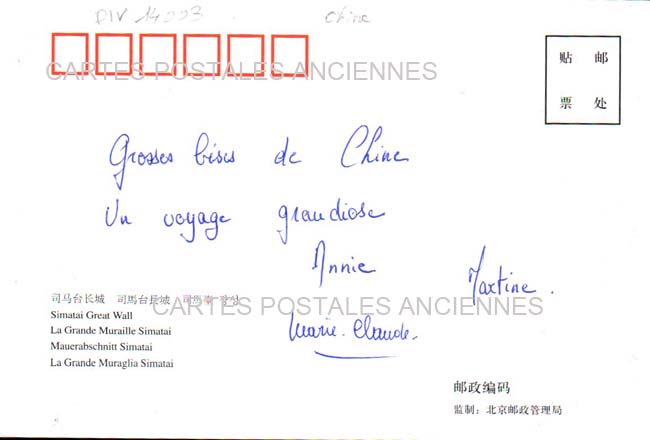 DIV 14003 Chine
CARTES POSTALES ANCIENNES
贴 邮
票 处
Grosses bises de Chine
Un voyage grandiose
Annie
Martine.
司马台长城 司馬台長城
CARTES POSTALES ANCIENNES
Simatai Great Wall
La Grande Muraille Simatai
Marie-Claude.
Mauerabschnitt Simatai
La Grande Muraglia Simatai
邮政编码
监制：北京邮政管理局